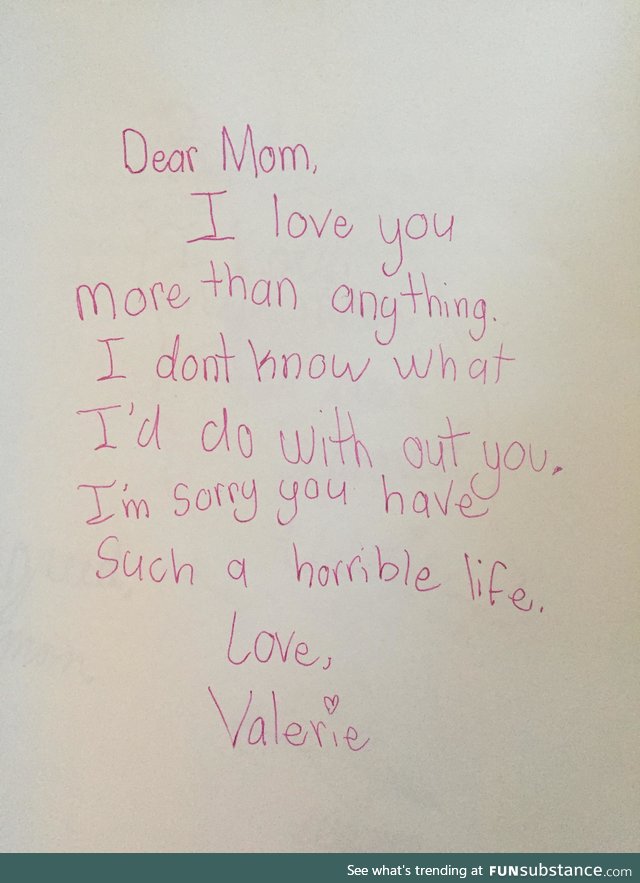 Dear Mom,
I love you
more than angthing.
I dont know what
I'd do with out you.
I'm sorry you have
Such a horrible life.
Love,
Valerie
See what's trending at FUNsubstance.com